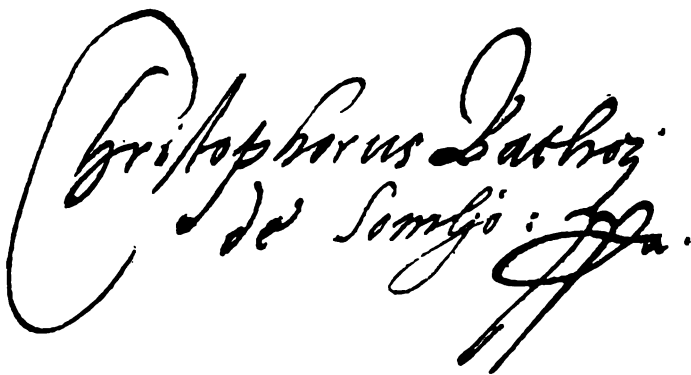 Christophorus Bathorj
de Somljo : ppa.